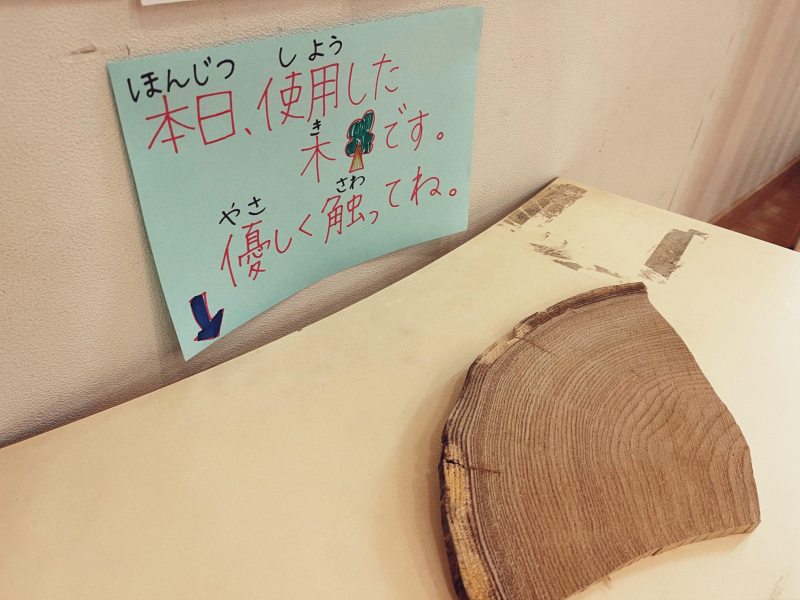 ほんじつ しよう
本日、使用した
き
木です。
やさ さわ
優しく触ってね。